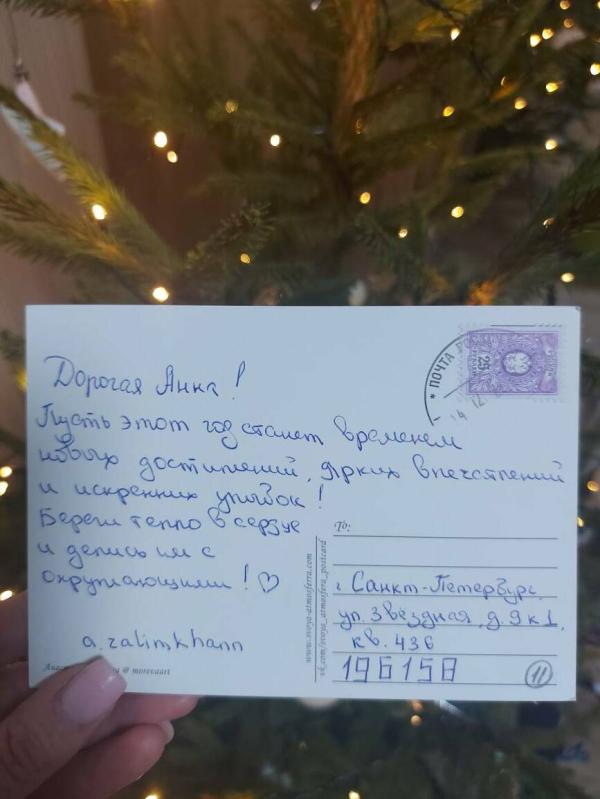 Дорогая Анна!
Пусть этот год станет временем
новых достижений, ярких впечатлений
и искренних улыбок!
Береги тепло в сердце
и делись им с
окружающими! ♡
a.zalimkhann
ПОЧТА
25
To:
г. Санкт-Петербург,
ул. Звёздная, д. 9 к 1,
кв. 436
196158
11
www.svoya-atmosfera.com
vk.com/svoya_atmosfera_postcard
@ morevaart